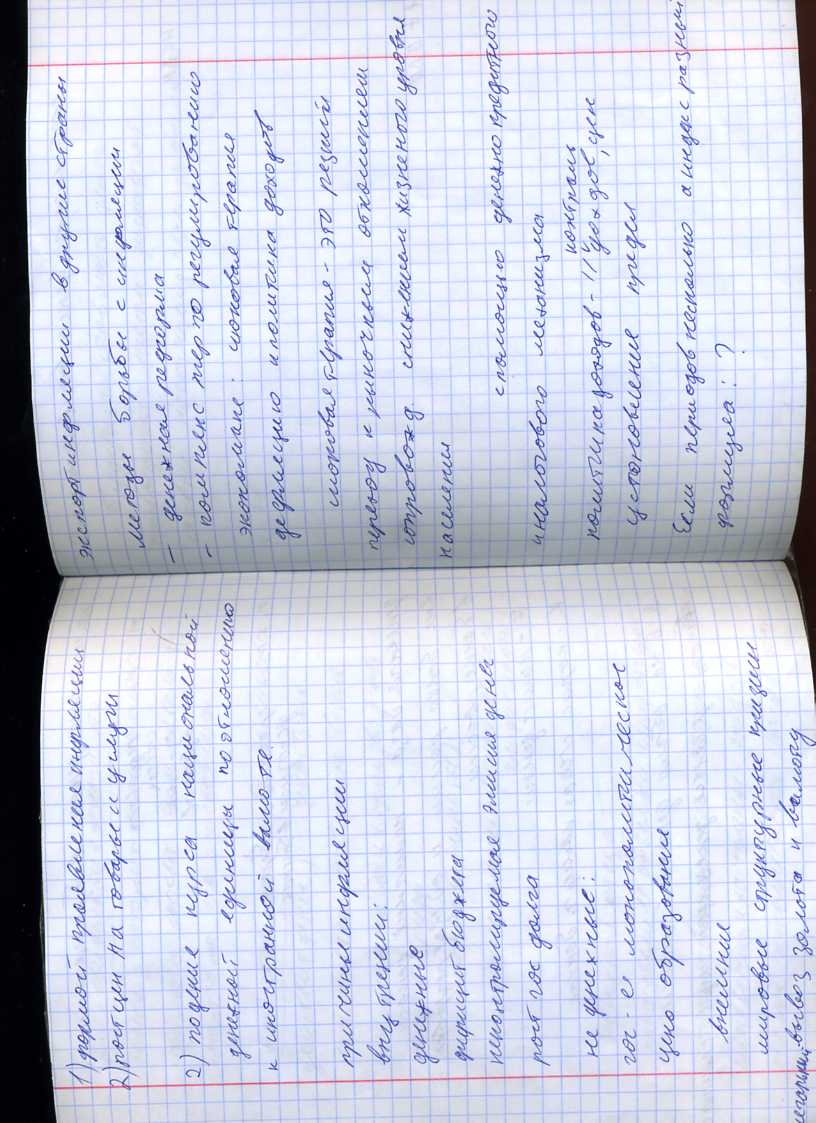 1) формой проявления инфляции
2) рост цен на товары и услуги
2) подение курса национальной
денежной единицы по отношению
к иностранной валюте.
причины инфляции
внутрении:
денежные
дифицит бюджета
неконтролируемая эмиссия денег
рост гос долга
не денежные:
гос-е монополитическое
цено образование
внешние
мировые структурные кризисы
вывоз золота и валюты
экспорт инфляции в другие страны
методы борьбы с инфляции
- денежная реформа
- комплекс мер по регулированию
экономике: шоковая терапия
дефляцию и политика доходов
шоковая терапия - это резкий
переход к рыночным отношением
сопровожд. снижением жизненого уровня
населения
с помощью денежно кредитного
и налогового механизма
контроль
политика доходов - // доходов, цен
установление предел
Если периодов несколько а индекс разный
формула: ?